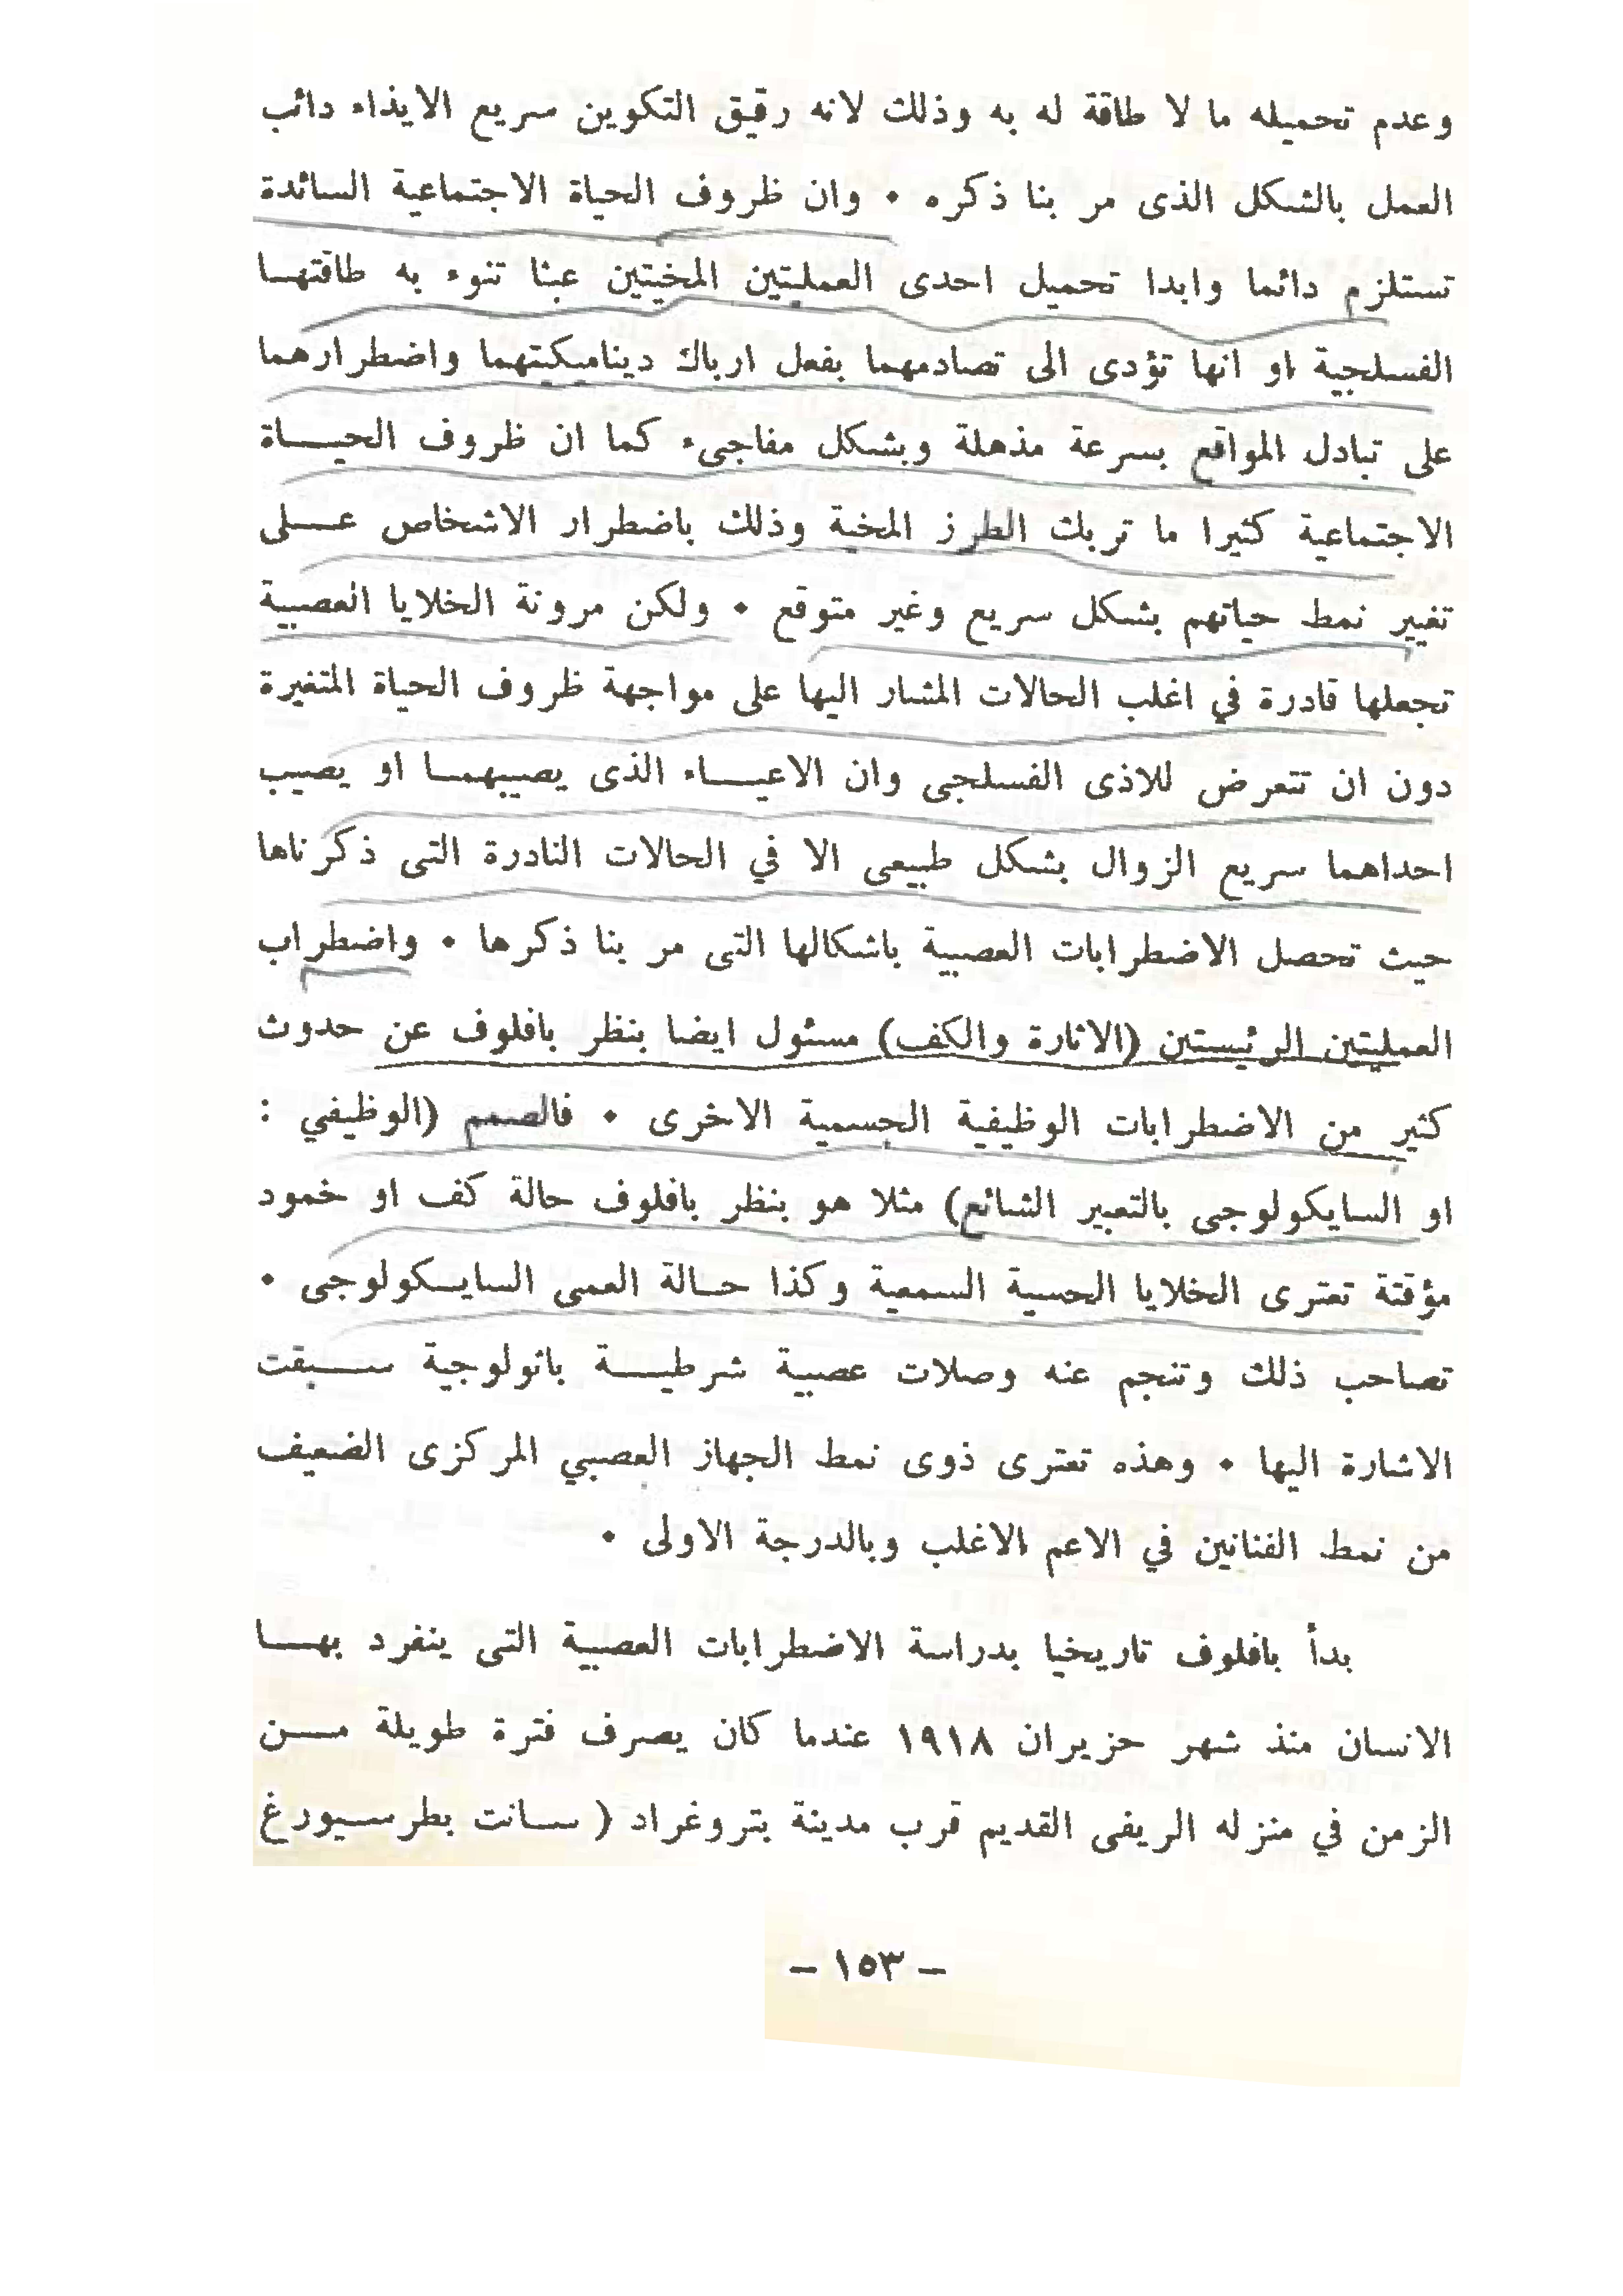 وعدم تحميله ما لا طاقة له به وذلك لانه رقيق التكوين سريع الايذاء دائب
العمل بالشكل الذى مر بنا ذكره • وان ظروف الحياة الاجتماعية السائدة
تستلزم دائما وابدا تحميل احدى العمليتين المخيتين عبثا تنوء به طاقتهـا
الفسلجية او انها تؤدى الى تصادمهما بفعل ارباك ديناميكيتهما واضطرارهما
على تبادل المواقع بسرعة مذهلة وبشكل مفاجىء كما ان ظروف الحيـــاة
الاجتماعية كثيرا ما تربك الطرز المخية وذلك باضطرار الاشخاص عـــلى
تغيير نمط حياتهم بشكل سريع وغير متوقع • ولكن مرونة الخلايا العصبية
تجعلها قادرة في اغلب الحالات المشار اليها على مواجهة ظروف الحياة المتغيرة
دون ان تتعرض للاذى الفسلجى وان الاعيـــاء الذى يصيبهمـا او يصيب
احداهما سريع الزوال بشكل طبيعى الا في الحالات النادرة التى ذكرناها
حيث تحصل الاضطرابات العصبية باشكالها التى مر بنا ذكرها • واضطراب
العمليتين الرئيستين (الاثارة والكف) مسئول ايضا بنظر بافلوف عن حدوث
كثير من الاضطرابات الوظيفية الجسمية الاخرى • فالصمم (الوظيفي :
او السايكولوجى بالتعبير الشائع) مثلا هو بنظر بافلوف حالة كف او خمود
مؤقتة تعترى الخلايا الحسية السمعية وكذا حـالة العمى السايـكولوجى •
تصاحب ذلك وتنجم عنه وصلات عصبية شرطيـــة باثولوجية ســـبقت
الاشارة اليها • وهذه تعترى ذوى نمط الجهاز العصبي المركزى الضعيف
من نمط الفنانين في الاعم الاغلب وبالدرجة الاولى •
بدأ بافلوف تاريخيا بدراسة الاضطرابات العصبية التى ينفرد بهـــا
الانسان منذ شهر حزيران ١٩١٨ عندما كان يصرف فترة طويلة مـــن
الزمن في منزله الريفى القديم قرب مدينة بتروغراد ( سـانت بطرسـبورغ
– ١٥٣ –